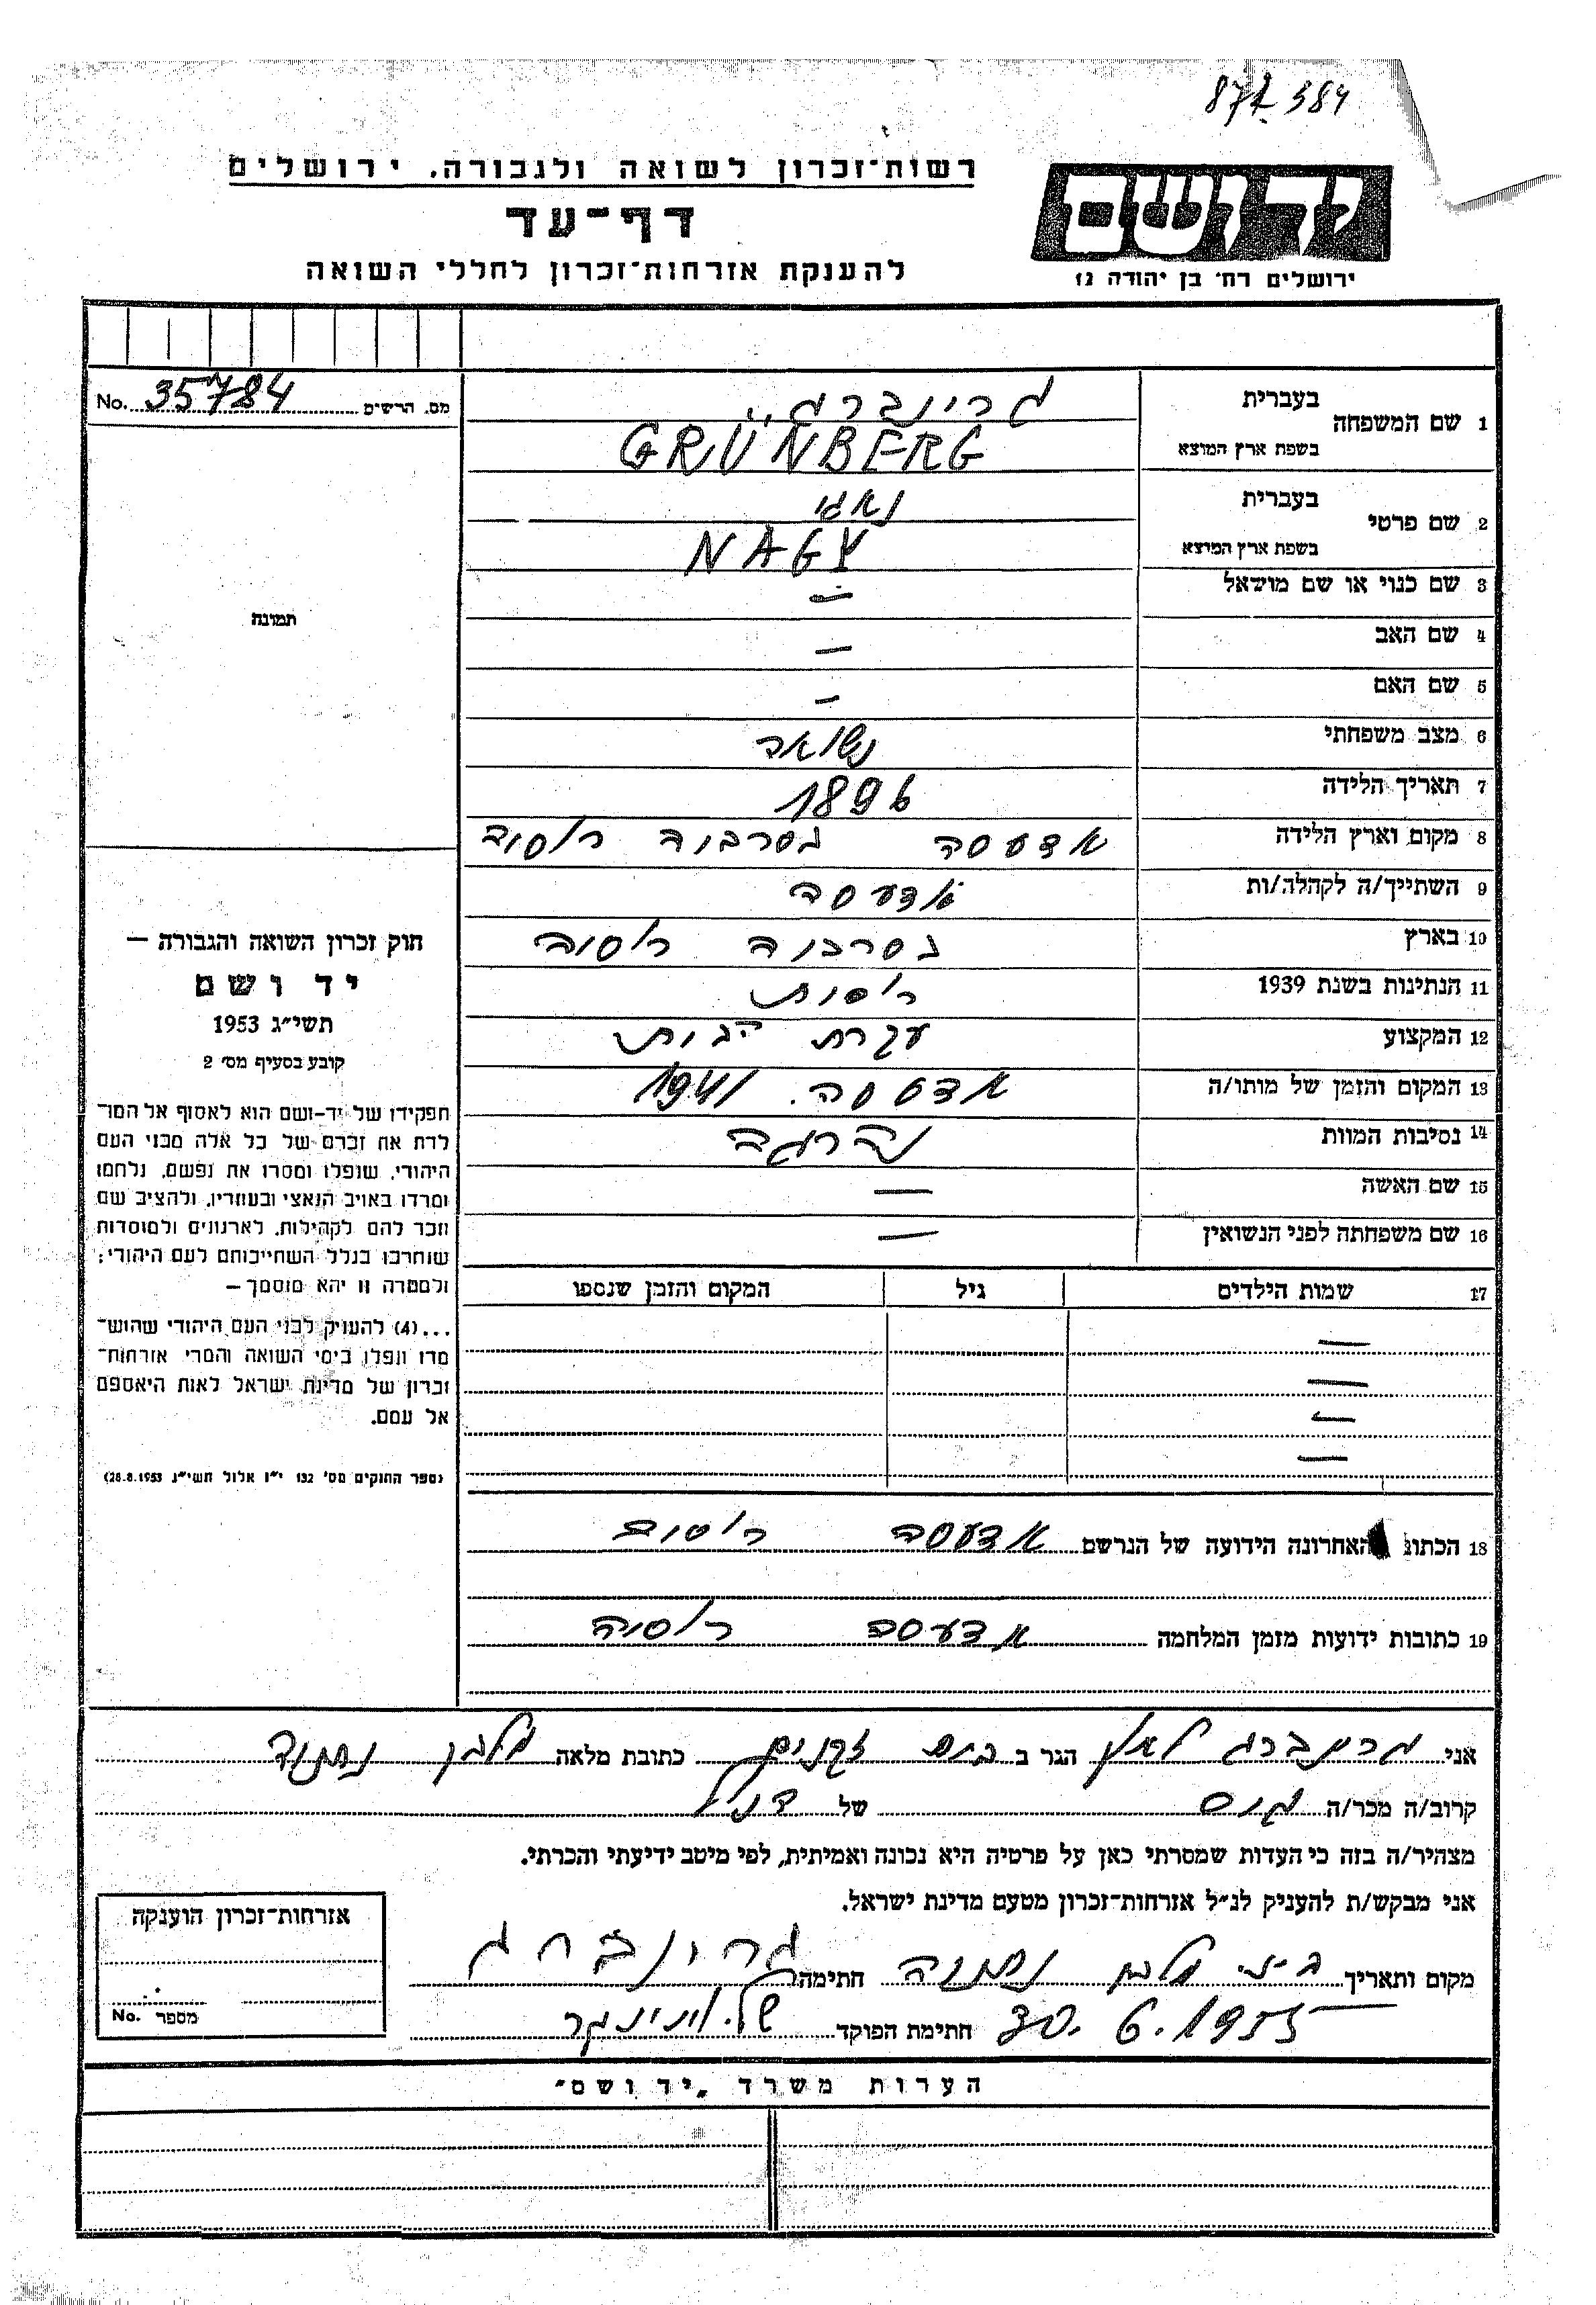 87L 384
רשות־זכרון לשואה ולגבורה. ירושלים
יד ושם
דף־עד
ירושלים רח׳ בן יהודה נז
להענקת אזרחות־זכרון לחללי השואה
1 שם המשפחה
בעברית גרינברג
בשפת ארץ המוצא GRÜNBERG
מס. הרשים No. 35784
2 שם פרטי
בעברית נאגי
בשפת ארץ המוצא NAGY
3 שם כנוי או שם מושאל —
תמונה
4 שם האב —
5 שם האם —
6 מצב משפחתי נשואה
7 תאריך הלידה 1896
8 מקום וארץ הלידה אדעסה בסרביה רוסיה
9 השתייך/ה לקהלה/ות אדעסה
10 בארץ בסרביה רוסיה
11 הנתינות בשנת 1939 רוסית
12 המקצוע עקרת הבית
13 המקום והזמן של מותו/ה אדססה. 1941
14 נסיבות המוות נהרגה
15 שם האשה —
16 שם משפחתה לפני הנשואין —
17 שמות הילדים גיל המקום והזמן שנספו
—
—
—
—
חוק זכרון השואה והגבורה —
יד ושם
תשי״ג 1953
קובע בסעיף מס׳ 2
תפקידו של יד-ושם הוא לאסוף אל המו־
לדת את זכרם של כל אלה מבני העם
היהודי, שנפלו ומסרו את נפשם, נלחמו
ומרדו באויב הנאצי ובעוזריו, ולהציב שם
וזכר להם לקהילות, לארגונים ולמוסדות
שנחרבו בגלל השתייכותם לעם היהודי;
ולמטרה זו יהא מוסמך —
...(4) להעניק לבני העם היהודי שהוש־
מדו ונפלו בימי השואה והמרי אזרחות־
זכרון של מדינת ישראל לאות היאספם
אל עמם.
(ספר החוקים מס׳ 132 י״ז אלול תשי״ג 28.8.1953)
18 הכתובת האחרונה הידועה של הנרשם אדעסה רוסיה
19 כתובות ידועות מזמן המלחמה אדעסה רוסיה
אני גרינברג לאון הגר ב בית זקנים כתובת מלאה מלבן נתניה
קרוב/ה מכר/ה גיס של הנ״ל
מצהיר/ה בזה כי העדות שמסרתי כאן על פרטיה היא נכונה ואמיתית, לפי מיטב ידיעתי והכרתי.
אני מבקש/ת להעניק לנ״ל אזרחות־זכרון מטעם מדינת ישראל.
מקום ותאריך מלבן נתניה חתימה גרינברג
30.6.1955 חתימת הפוקד
אזרחות־זכרון הוענקה
מספר No.
הערות משרד „יד ושם״